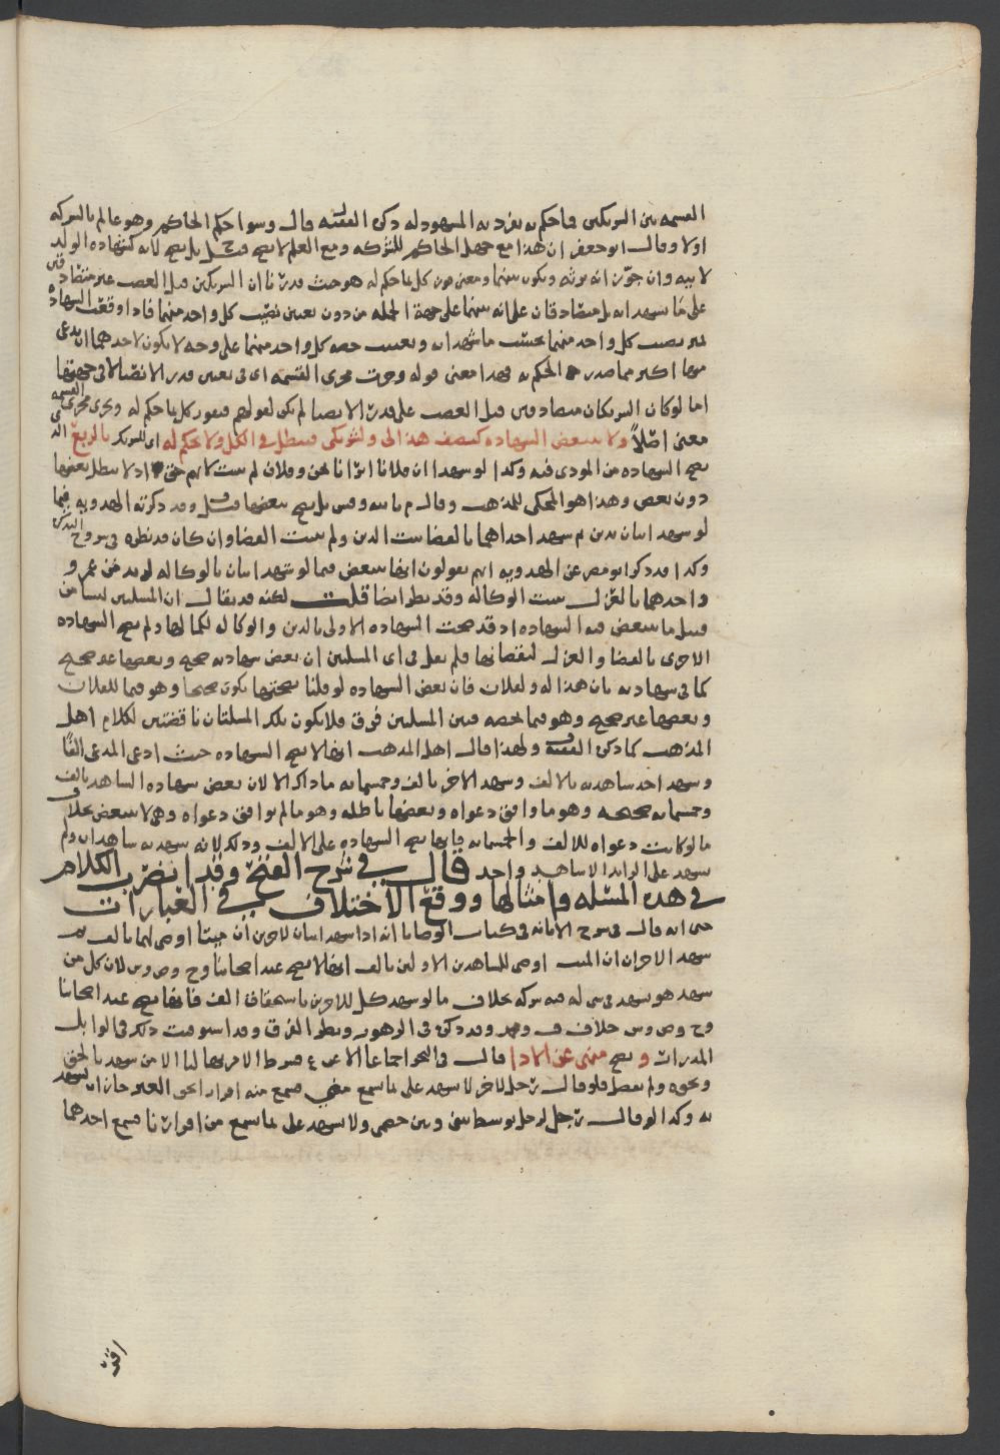 القسمه بين الشريكين فما حكم به يفرد به المشهود له ذكره الفقيه قال وسوا حكم الحاكم وهو عالم بالشركه
اولا وقال ابو جعفر ان هذا مع جهل الحاكم للشركه ومع العلم لا يصح قيل بل يصح لانه كشهاده الولد
لابيه وان جوزنا انه يرثه ويكون بينهما ومعنى كون كل ما حكم له هو حيث قدرنا ان الشريكين قبل الغصب غير متصادقين
على ما شهد به بل متصادقان على انه بينهما على جهة الجمله من دون تعيين نصيب كل واحد منهما فاذا وقعت الشهاده
نصيب كل واحد منهما بحسب ما شهد به وتعينت حصه كل واحد منهما على وجه لا يكون لاحدهما ان يدعى
منها اكثر مما صدر الحكم به فهذا معنى قوله وجرت مجرى القسمه اى فى تعيين قدر الانصبا لا فى جهتها
اما لو كان الشريكان متصادقين قبل الغصب على قدر الانصبا لم يكن لقولهم فيفوز كل بما حكم له وجرى مجرى القسمه
معنى اصلاً ولا تتبعض الشهاده كنصف هذا لى ولشريكى فتبطل فى الكل ولا يحكم له اى للشريك بالربع
تصح الشهاده من المودى فيه وكذا لو شهدا ان فلانا ابرانا نحن وفلان لم يثبت لايهم حق اذ لا تبطل بعضها
دون بعض وهذا هو المحكى للمذهب وقال م بالله وقش بل يصح تبعضها قيل وقد ذكرته الهدويه فيما
لو شهد اثنان بدين ثم شهد احداهما بالقضا يثبت الدين ولم يثبت القضا وان كان قد نظره فى شروح التذكره
وكذا قد ذكر ابو مضر عن الهدويه انهم يقولون انها تتبعض فيما لو شهد اثنان بالوكاله لزيد من عمرو
واحدهما بالعزل يثبت الوكاله وقد نظر ايضا قلت لكنه قد يقال ان المسئلتين ليستا من
قبيل ما تتبعض فيه الشهاده اذ قد صحت الشهاده الاولى بالدين والوكاله لكمالها ولم تصح الشهاده
الاخرى بالقضا والعزل لنقصانها فلم نقل فى اى المسئلتين ان بعض شهادته صحيح وبعضها غير صحيح
كما فى شهادته بان هذا له ولفلان فان بعض الشهاده لو قلنا بصحتها يكون صحيحا وهو فيما لفلان
وبعضها غير صحيح وهو فيما يخصه فبين المسئلتين فرق فلا يكون تلك المسئلتان ناقضتين لكلام اهل
المذهب كما ذكره الفقيه ف ولهذا قال اهل المذهب انها لا تصح الشهاده حيث ادعى المدعى الفًا
وشهد احد شاهديه بالالف وشهد الاخر بالف وخمسمايه ما ذاك الا لان بعض شهاده الشاهد بالف
وخمسمايه صحيحه وهو ما وافق دعواه وبعضها باطله وهو ما لم يوافق دعواه وهى لا تتبعض بخلاف
ما لو كانت دعواه للالف والخمسمايه فانها تصح الشهاده على الالف وذلك لانه شهد به شاهدان ولم
يشهد على الزايد الا شاهد واحد قال فى شرح الفتح وقد اضطرب الكلام
فى هذه المسئله وامثالها ووقع الاختلاف فى العبارات
حتى انه قال فى شرح الابانه فى كتاب الوصايا انه اذا شهد اثنان لاخرين ان ميتا اوصى لهما بالف ثم
شهد الاخران ان الميت اوصى للشاهدين الاولين بالف انها لا تصح عند اصحابنا وح وص وش لان كل من
شهد هو شهد فى شى له فيه شركه بخلاف ما لو شهد كل للاخرين باستحقاق الف فانها تصح عند اصحابنا
وح وص وش خلاف ف وقد ذكره فى الزهور ونظر الفرق وقد استوفيت ذلك فى الوابل
المدرار و تصح ممن نهى عن الادا قال فى البحر اجماعا الا عن ع فشرط الامر بها لنا الا من شهد بالحق
ونحوه ولم يفصل فلو قال رجل لاخر لا تشهد على ما تسمع منى فسمع منه اقرار بحق الغير جاز ان يشهد
به وكذا لو قال رجل لرجل توسط بينى وبين خصمى ولا تشهد على ما تسمع من اقرارنا فسمع احدهما